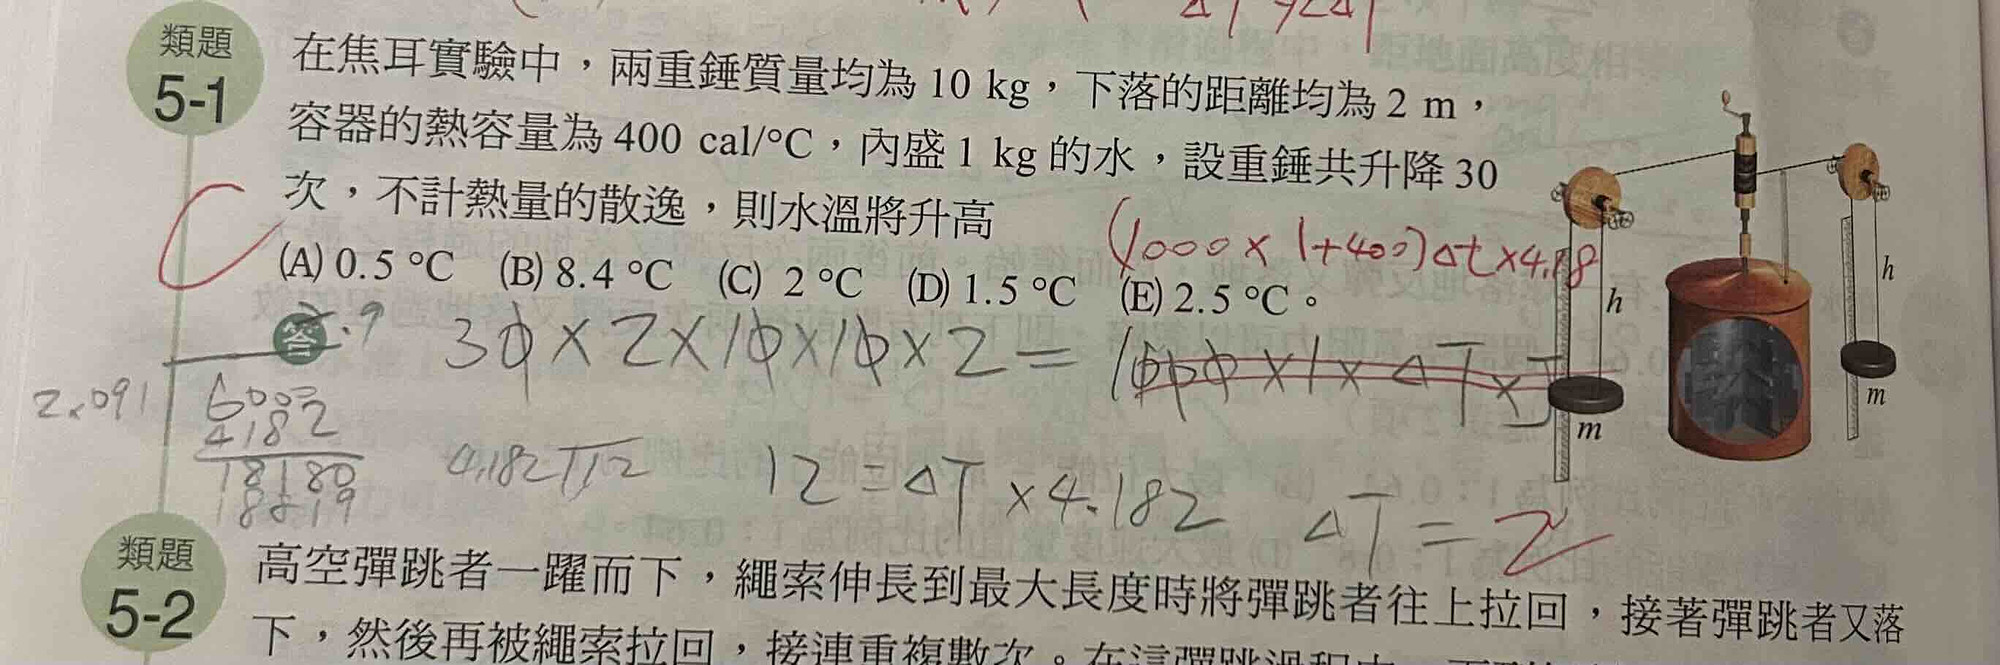 類題
5-1
在焦耳實驗中，兩重錘質量均為 10 kg，下落的距離均為 2 m，
容器的熱容量為 400 cal/°C，內盛 1 kg 的水，設重錘共升降 30
次，不計熱量的散逸，則水溫將升高
(1000 × 1+400)Δt×4.18
(A) 0.5 °C (B) 8.4 °C (C) 2 °C (D) 1.5 °C (E) 2.5 °C。
C
答
30×2×10×10×2=
1000×1×ΔT×
2.091
6000
4182
18180
4.182
12
12=ΔT×4.182
ΔT=2
h
h
m
m
類題
5-2
高空彈跳者一躍而下，繩索伸長到最大長度時將彈跳者往上拉回，接著彈跳者又落
下，然後再被繩索拉回，接連重複數次。在這彈跳過程中，